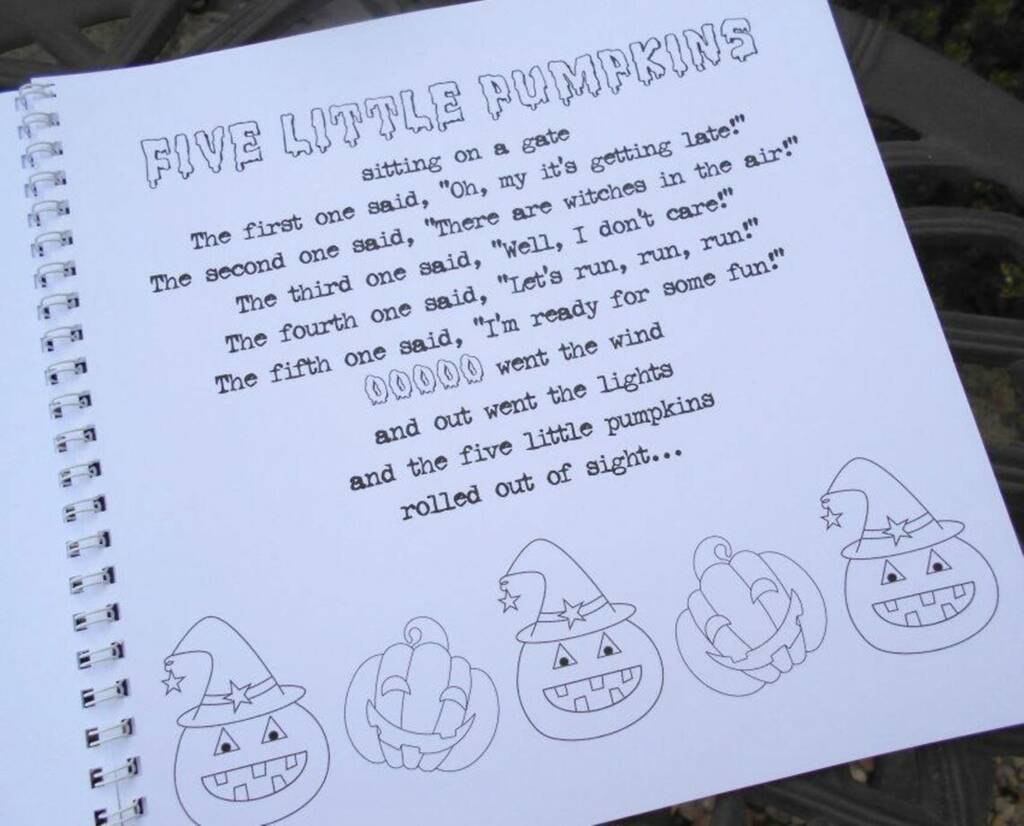 FIVE LITTLE PUMPKINS
sitting on a gate
The first one said, "Oh, my it's getting late!"
The second one said, "There are witches in the air!"
The third one said, "Well, I don't care!"
The fourth one said, "Let's run, run, run!"
The fifth one said, "I'm ready for some fun!"
OOOOO went the wind
and out went the lights
and the five little pumpkins
rolled out of sight...